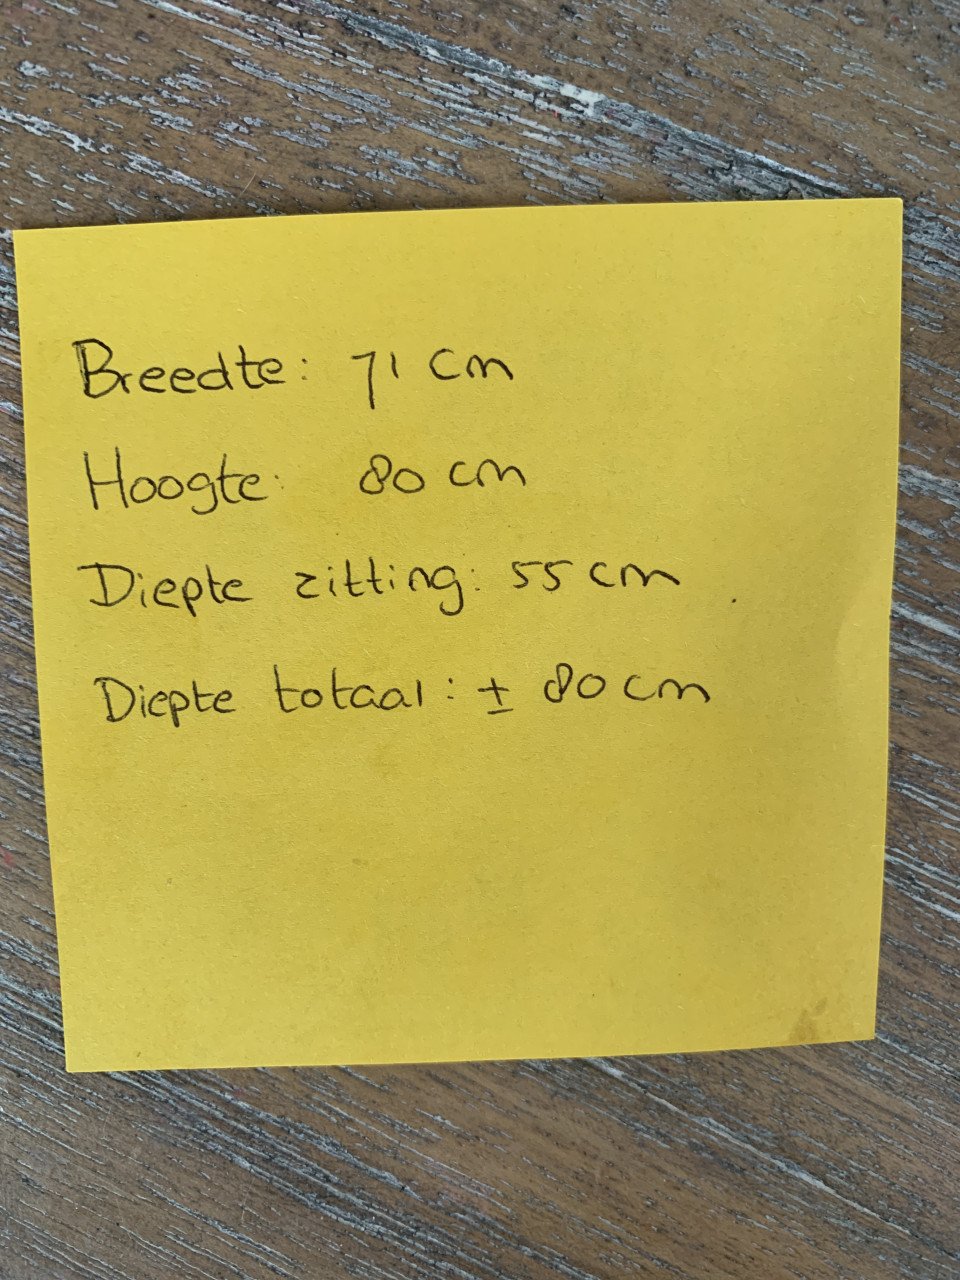 Breedte: 71 cm
Hoogte: 80 cm
Diepte zitting: 55 cm
Diepte totaal: ± 80 cm